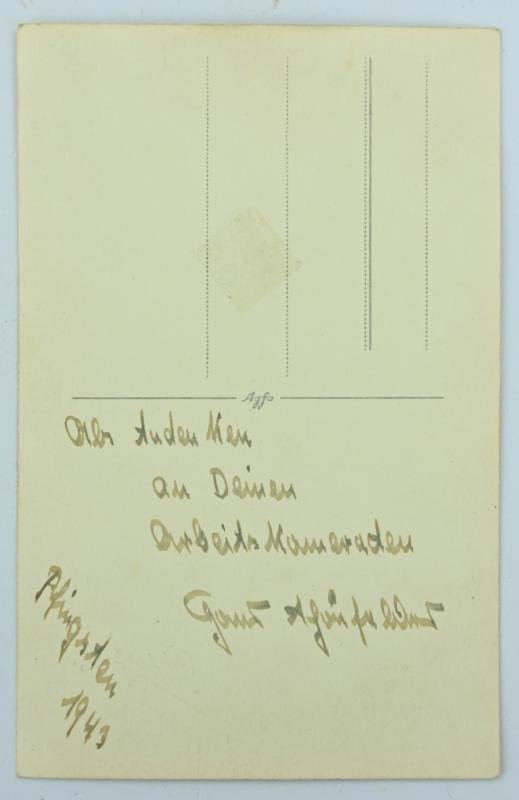 Agfa
Als Andenken
an Deinen
Arbeitskameraden
Pfingsten
1943